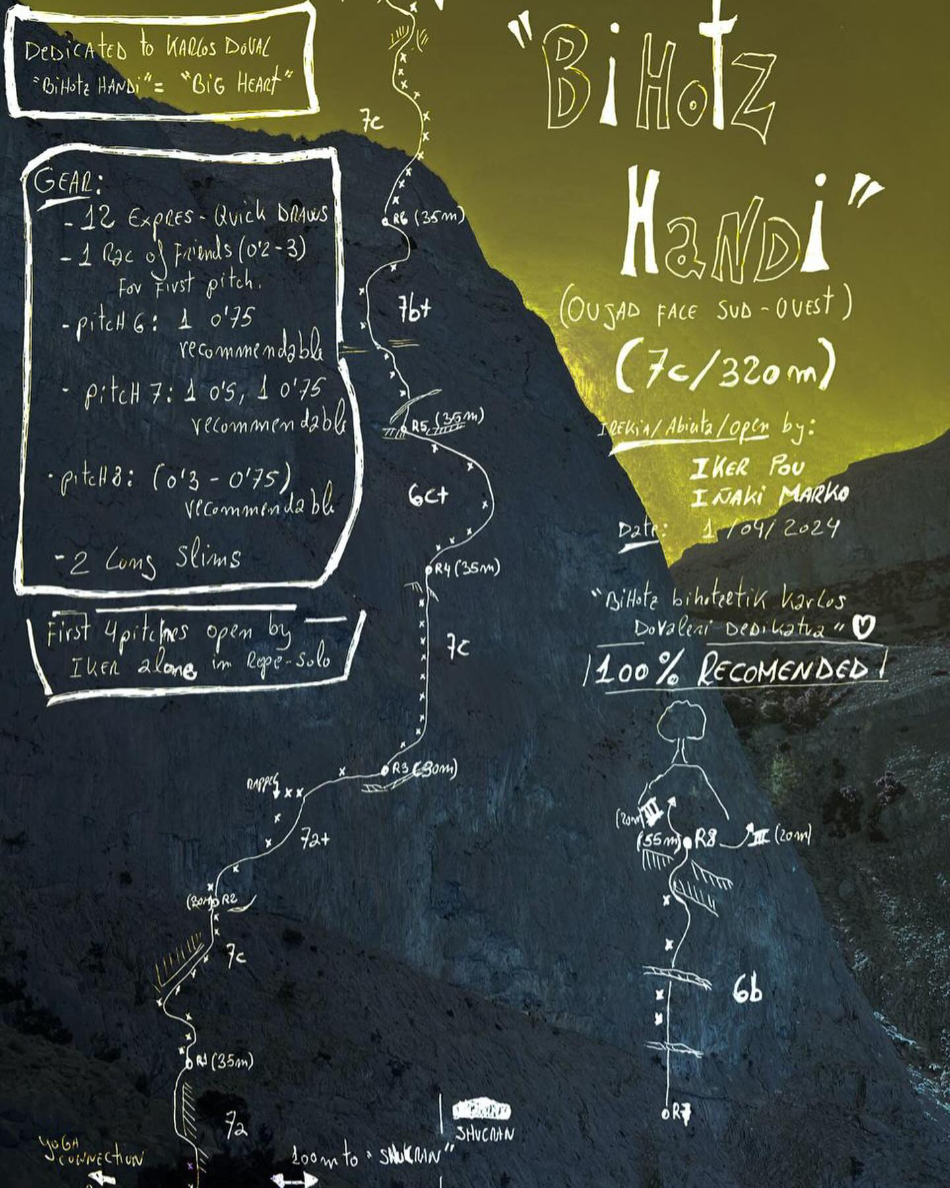 DEDICATED to KARLOS DOVAL
"BiHotz HANDi" = "BIG HEART"
"BiHotz
HaNDi"
(OUJAD FACE SUD-OUEST)
(7c/320m)
IREKIA/Abiuta/open by:
IKER POU
IÑAKI MARKO
Date: 1/04/2024
"BiHotz bihotzetik Karlos
Dovaleri DEDIKATUA"
¡100% RECOMENDED!
GEAR:
- 12 EXPRES-QUICK DRAWS
- 1 Rac of Friends (0'2-3)
For First pitch.
- pitcH 6: 1 0'75
recommendable
- pitcH 7: 1 0'5, 1 0'75
recommendable
- pitcH 8: (0'3 - 0'75)
recommendable
- 2 Long Slims
First 4 pitches open by
IKER alone in Rope-Solo
7c
R6 (35m)
7b+
R5 (35m)
6c+
R4 (35m)
7c
R3 (30m)
RAPPEL
7a+
(20m) R2
7c
R1 (35m)
7a
YOGA
CONNECTION
100m to "SHUCRAN"
SHUCRAN
(20m) III
(55m) R8
III (20m)
6b
R7